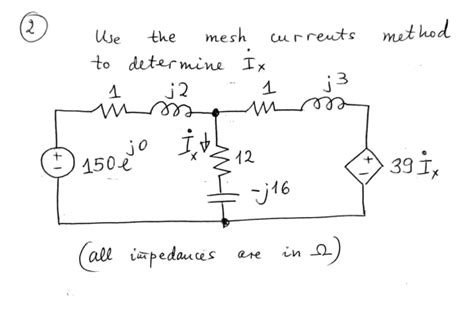 2
Use the mesh currents method
to determine İx
1 j2 1 j3
+ - 150e^j0 İx 12 + - 39 İx
-j16
(all impedances are in Ω)